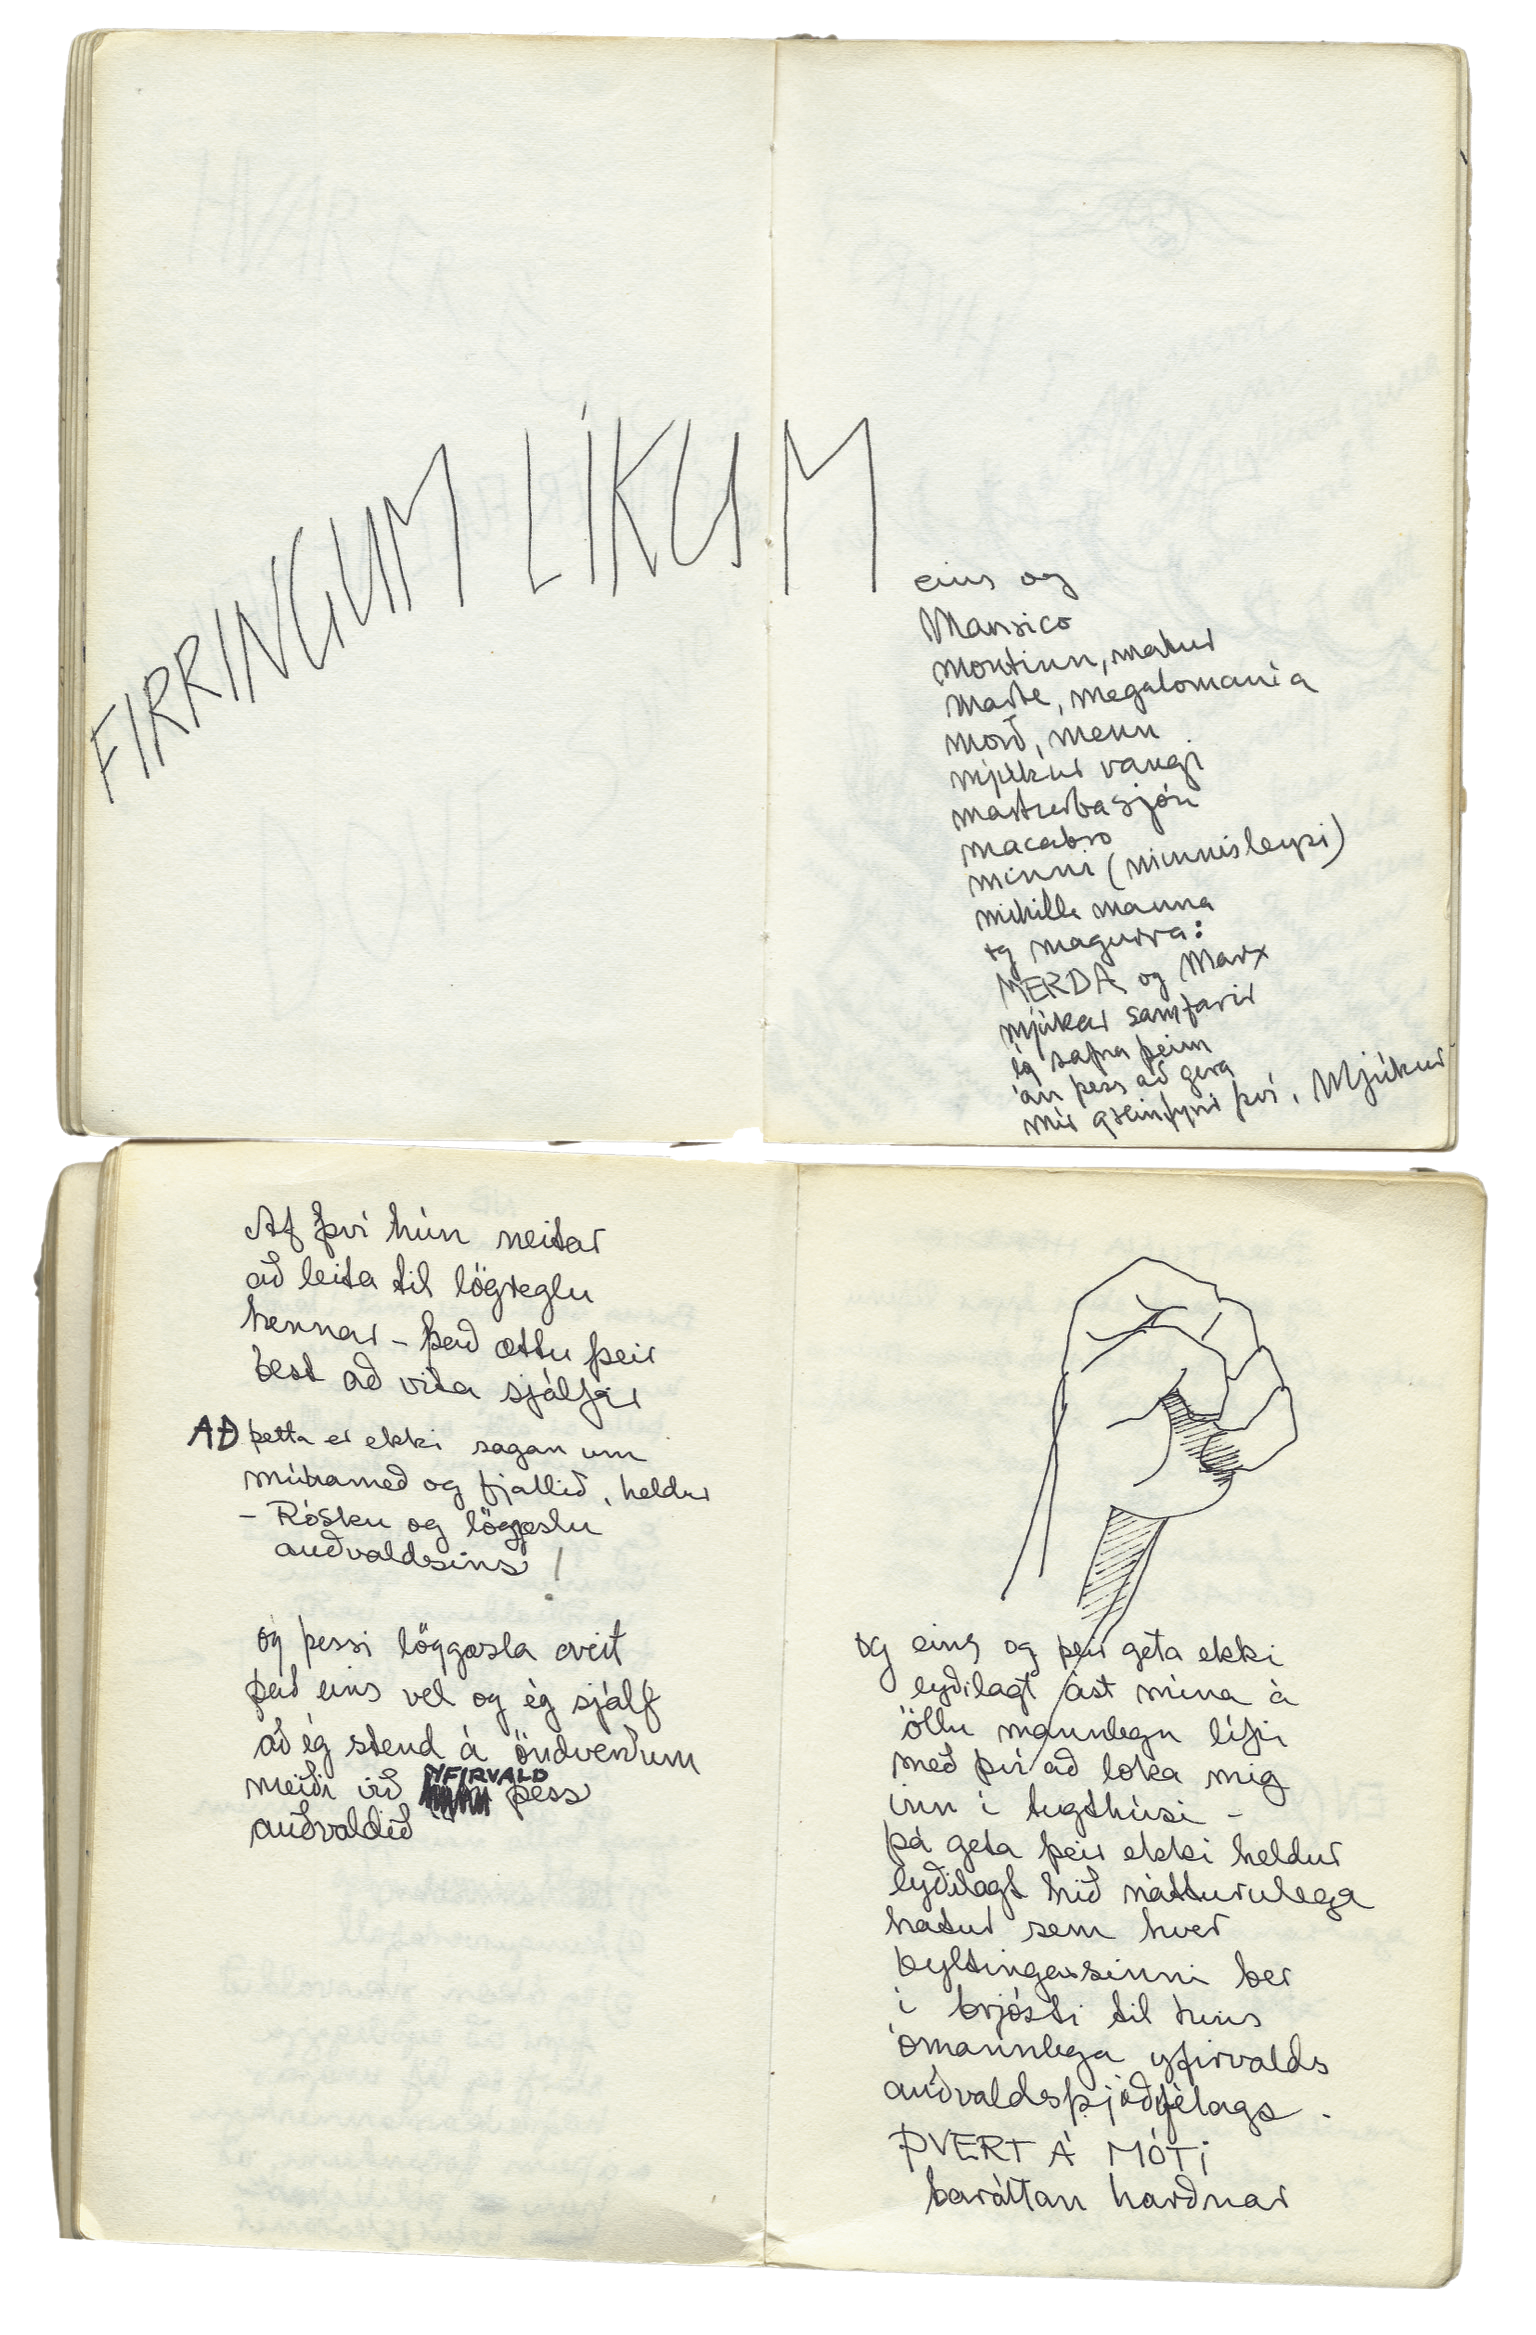 FIRRINGUM LÍKUM
eins og
Mansico
montinn, matur
marte, megalomanía
morð, menn
mjúkur vangi
masturbasjón
macabro
minni (minnisleysi)
mikilla manna
og magurra:
MERDA og Marx
mjúkar samfarir
ég safna þeim
án þess að gera
mér grein fyrir því. Mjúkur
Af því hún neitar
að leita til lögreglu
hennar - það ættu þeir
best að vita sjálfir
AÐ þetta er ekki sagan um
múhameð og fjallið, heldur
- Rósku og löggæslu
auðvaldsins!
og þessi löggæsla veit
það eins vel og ég sjálf
að ég stend á öndverðum
meiði við YFIRVALD þess
auðvaldið
og eins og þeir geta ekki
eyðilagt ást mína á
öllu mannlegu lífi
með því að loka mig
inn í tugthúsi -
þá geta þeir ekki heldur
eyðilagt hið nátturulega
hatur sem hver
byltingarsinni ber
í brjósti til hins
ómannlega yfirvalds
auðvaldsþjóðfélags.
ÞVERT Á MÓTI
baráttan harðnar